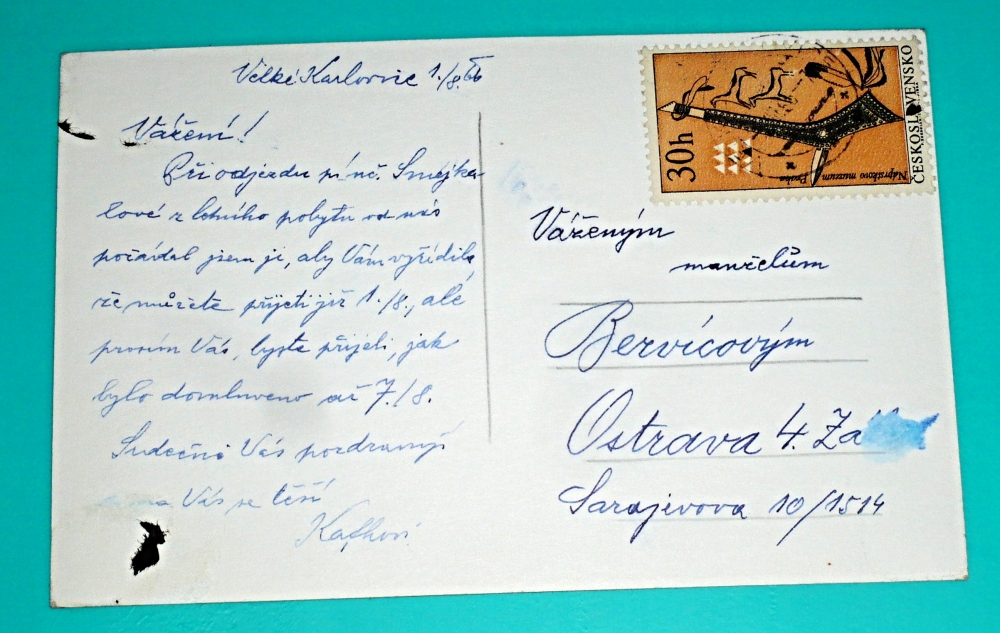 Velké Karlovice 1./8. 66
Vážení!
Při odjezdu pí. uč. Smejka
lové z letního pobytu od nás
požádal jsem ji, aby Vám vyřídila,
že můžete přijeti již 1./8., ale
prosím Vás, byste přijeli, jak
bylo domluveno až 7./8.
Srdečně Vás pozdravují
a na Vás se těší
Kafkovi
30h
ČESKOSLOVENSKO
Náprstkovo muzeum Praha
Váženým
manželům
Bervícovým
Ostrava 4. Zá
Sarajevova 10/1514